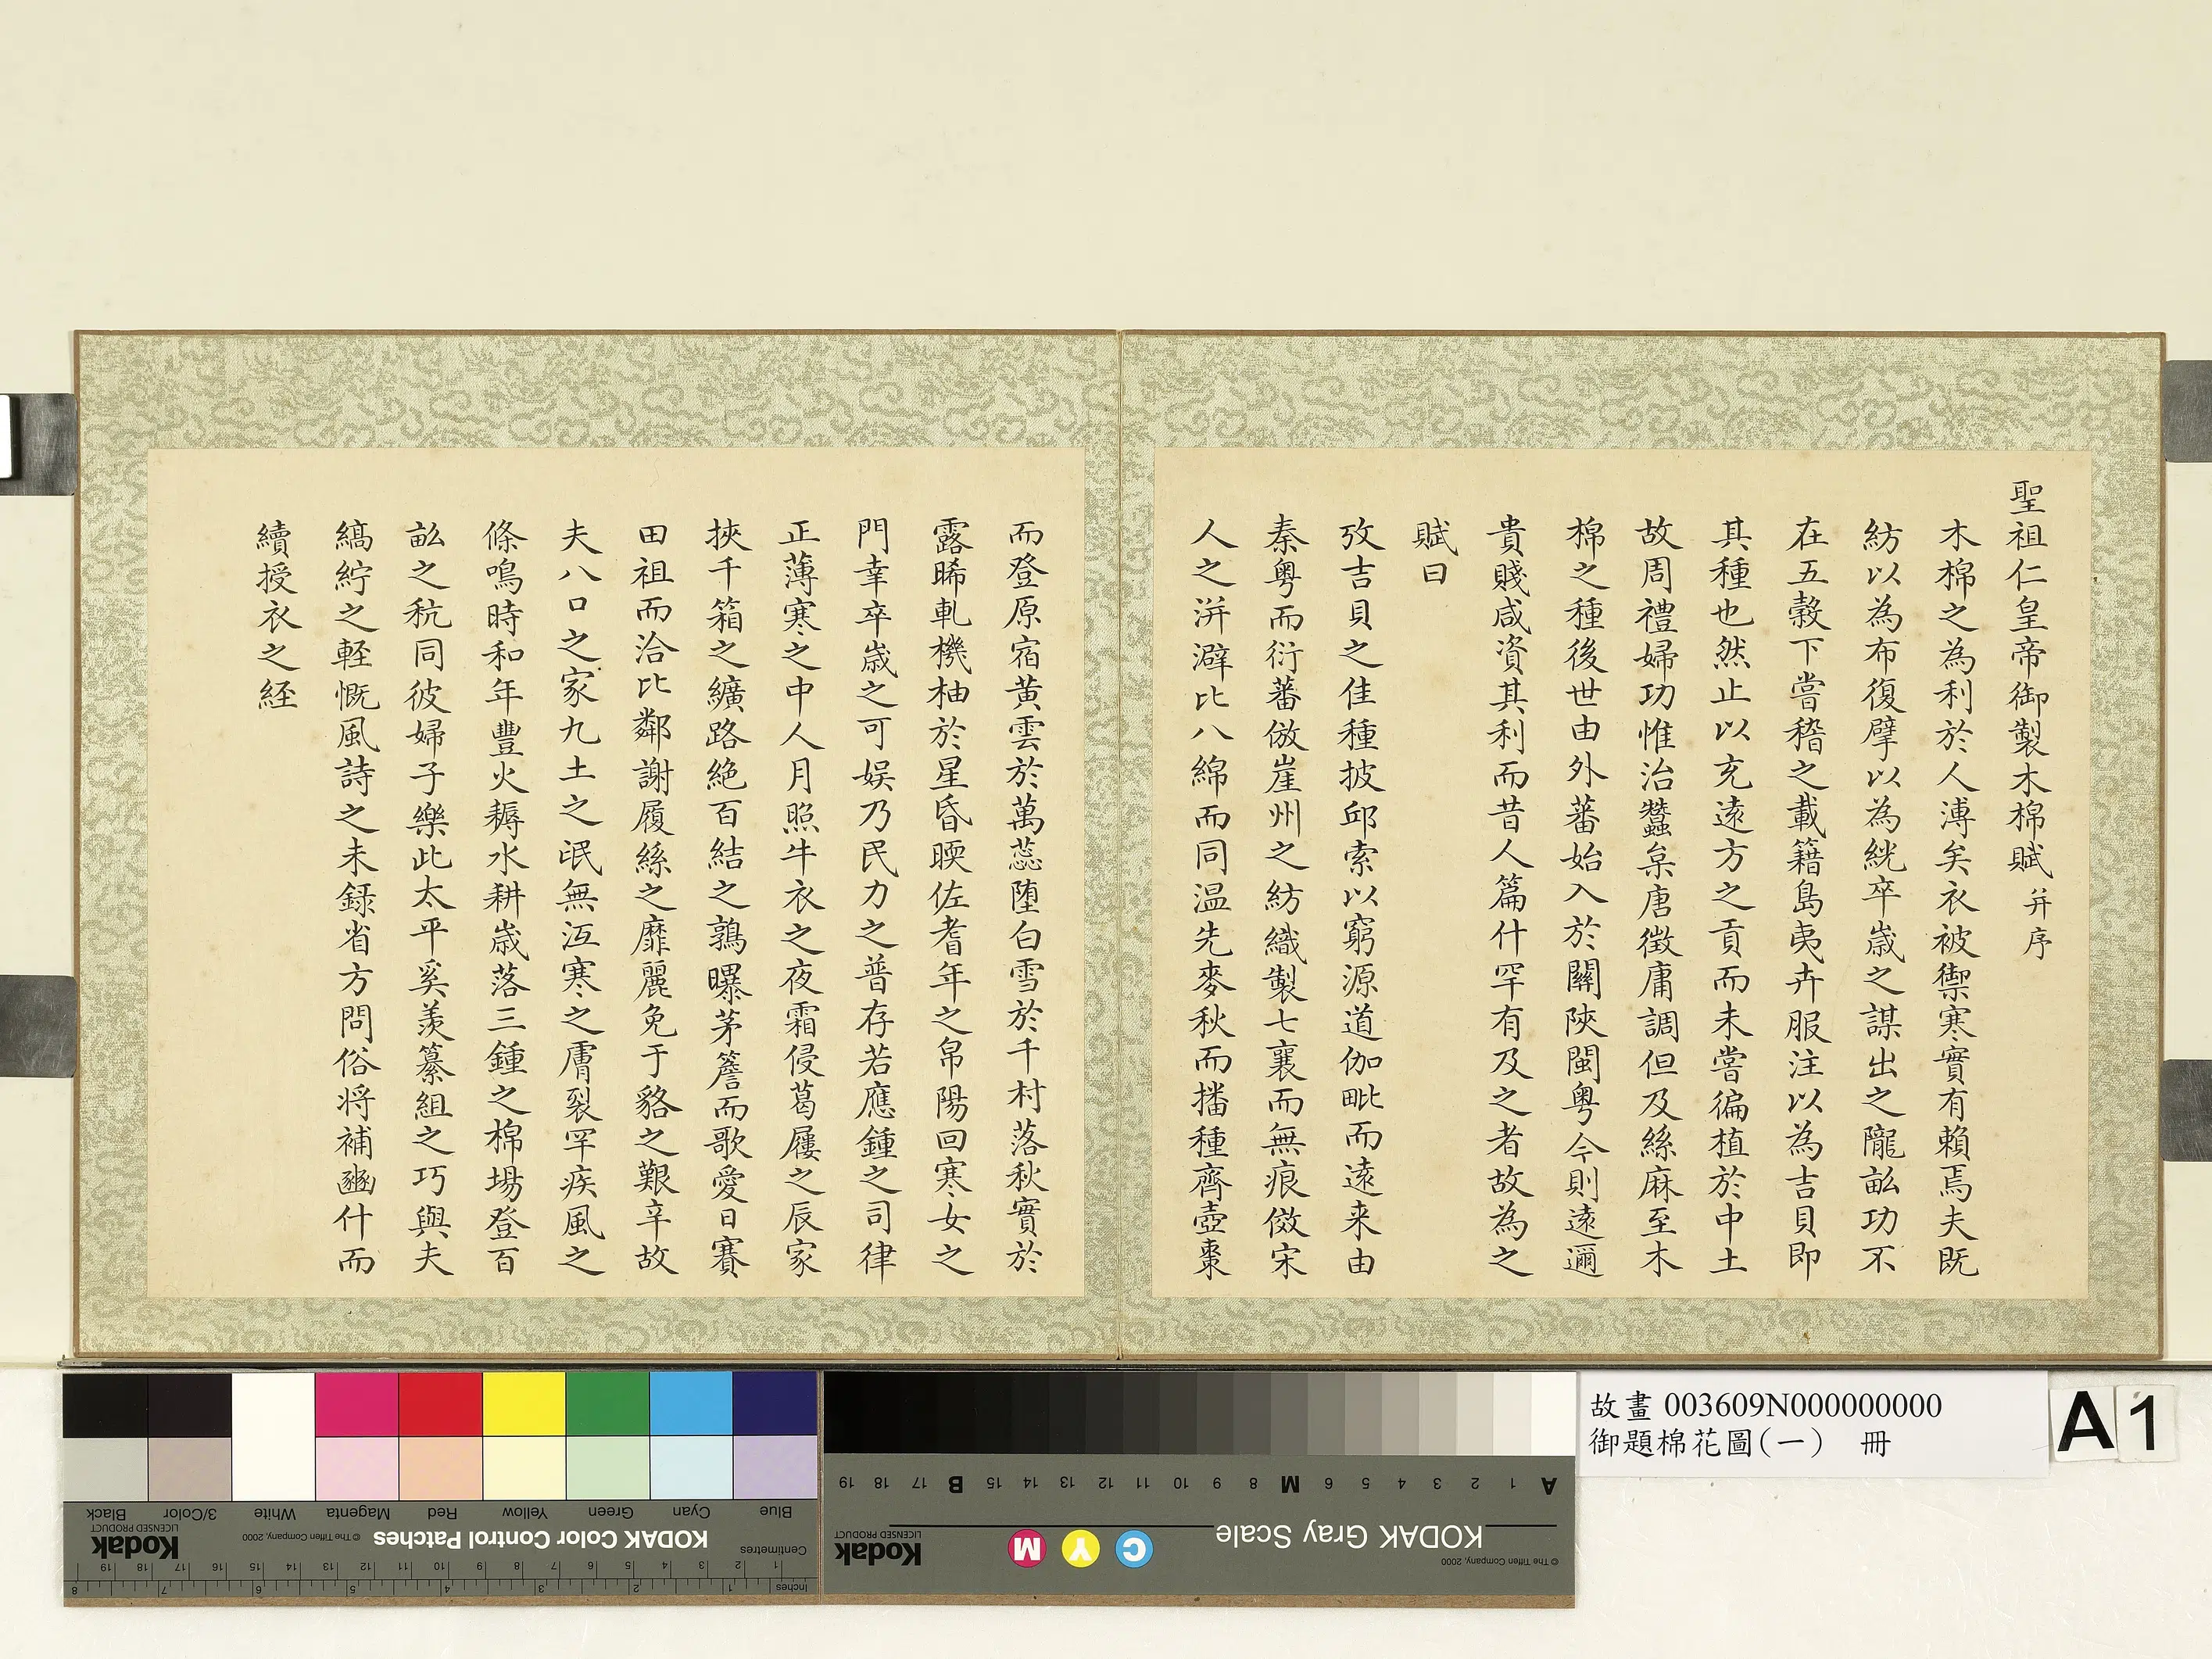 聖祖仁皇帝御製木棉賦 并序
木棉之為利於人溥矣衣被禦寒實有賴焉夫既
紡以為布復擘以為絖卒歲之謀出之隴畝功不
在五穀下嘗稽之載籍島夷卉服注以為吉貝即
其種也然止以充遠方之貢而未嘗徧植於中土
故周禮婦功惟治蠶枲唐徵庸調但及絲麻至木
棉之種後世由外蕃始入於關陝閩粵今則遠邇
貴賤咸資其利而昔人篇什罕有及之者故為之
賦曰
攷吉貝之佳種披邱索以窮源道伽毗而遠来由
秦粵而衍蕃倣崖州之紡織製七襄而無痕傚宋
人之洴澼比八綿而同温先麥秋而播種齊壺棗
而登原宿黃雲於萬蕊墮白雪於千村落秋實於
露晞軋機柚於星昏暎佐耆年之帛陽回寒女之
門幸卒歲之可娱乃民力之普存若應鍾之司律
正薄寒之中人月照牛衣之夜霜侵葛屨之辰家
挾千箱之纊路絶百結之鶉曝茅簷而歌愛日賽
田祖而洽比鄰謝履絲之靡麗免于貉之艱辛故
夫八口之家九土之氓無沍寒之膚裂罕疾風之
條鳴時和年豐火耨水耕歲落三鍾之棉場登百
畝之秔同彼婦子樂此太平奚羨纂組之巧與夫
縞紵之輕慨風詩之未録省方問俗将補豳什而
續授衣之経
故畫 003609N000000000
御題棉花圖(一) 冊
A 1
Blue Cyan Green Yellow Red Magenta White 3/Color Black
KODAK Color Control Patches © The Tiffen Company, 2000 Kodak LICENSED PRODUCT
Centimetres 1 2 3 4 5 6 7 8 9 10 11 12 13 14 15 16 17 18 19
Inches 1 2 3 4 5 6 7 8
A 1 2 3 4 5 6 M 8 9 10 11 12 13 14 15 B 17 18 19
KODAK Gray Scale C Y M Kodak LICENSED PRODUCT
© The Tiffen Company, 2000